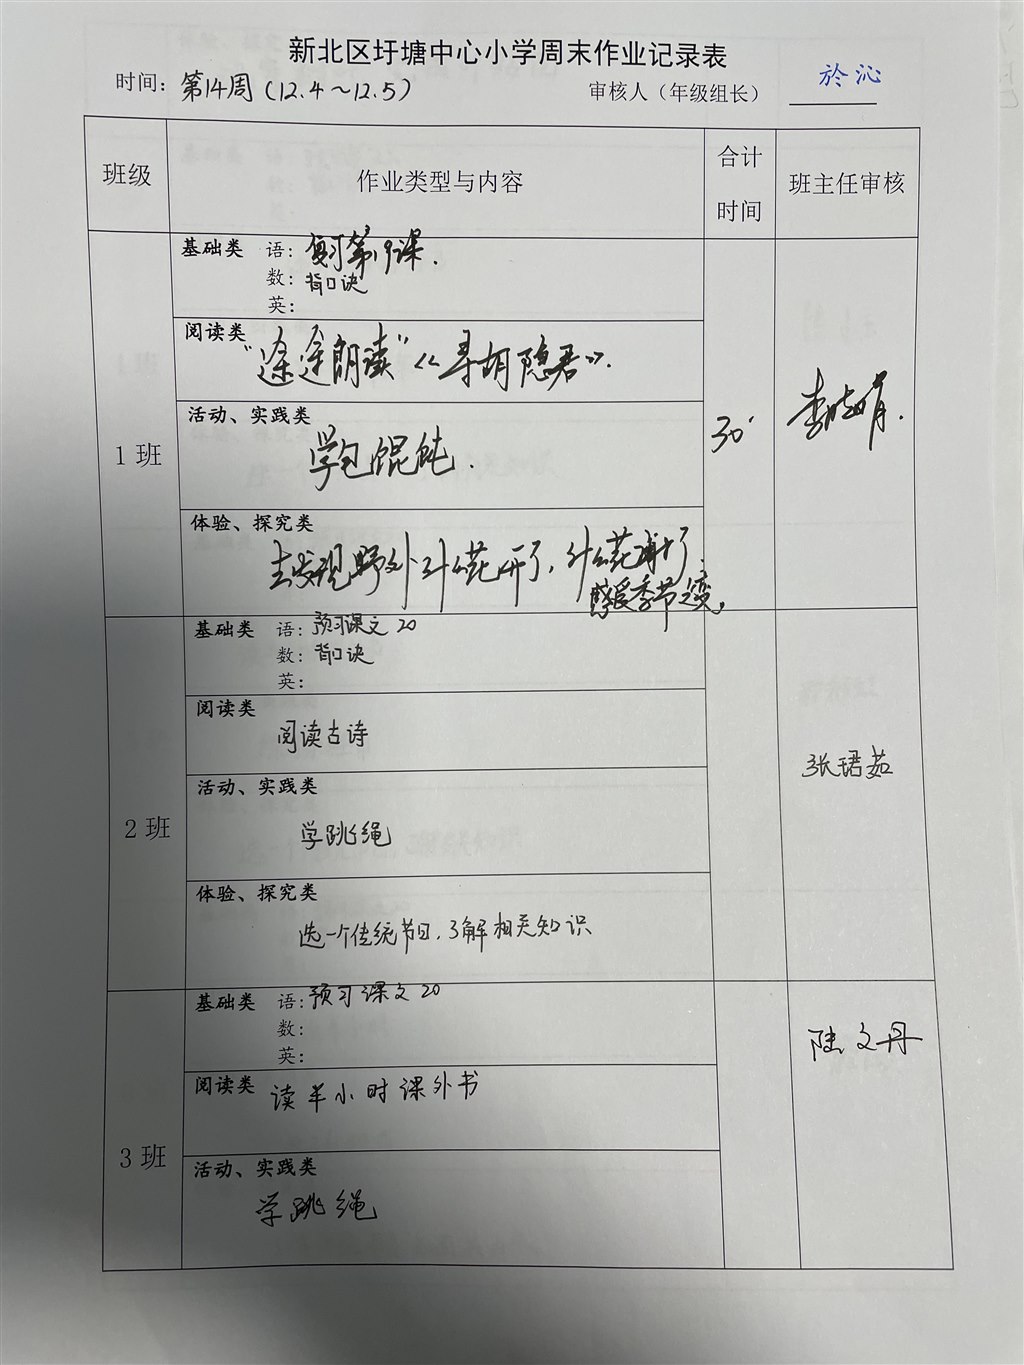 新北区圩塘中心小学周末作业记录表
时间：第14周（12.4～12.5） 审核人（年级组长） 於沁
班级 作业类型与内容 合计时间 班主任审核
1班
基础类 语：复习第19课.
数：背口诀
英：
阅读类
“途途朗读”《寻胡隐君》.
活动、实践类
学包馄饨.
体验、探究类
去发现野外什么花开了，什么花谢了.
感受季节之变。
30'
李晓娟.
2班
基础类 语：预习课文20
数：背口诀
英：
阅读类
阅读古诗
活动、实践类
学跳绳
体验、探究类
选一个传统节日，了解相关知识
张珺茹
3班
基础类 语：预习课文20
数：
英：
阅读类 读半小时课外书
活动、实践类
学跳绳
陆文丹